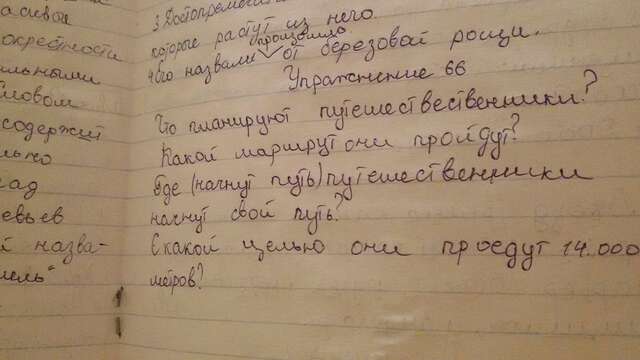 асивой
окрестности
альными
ймовом
содержит
льно
сад
евьев
й назва-
мель"
3 Достопремечат
которые растут из него.
произошло
4 Его назвали от березовой рощи.
Упражнение 66
Что планируют путешествественники?
Какой маршрут они пройдут?
Где (начнут путь) путешественники
начнут свой путь?
С какой целью они проедут 14.000
метров?